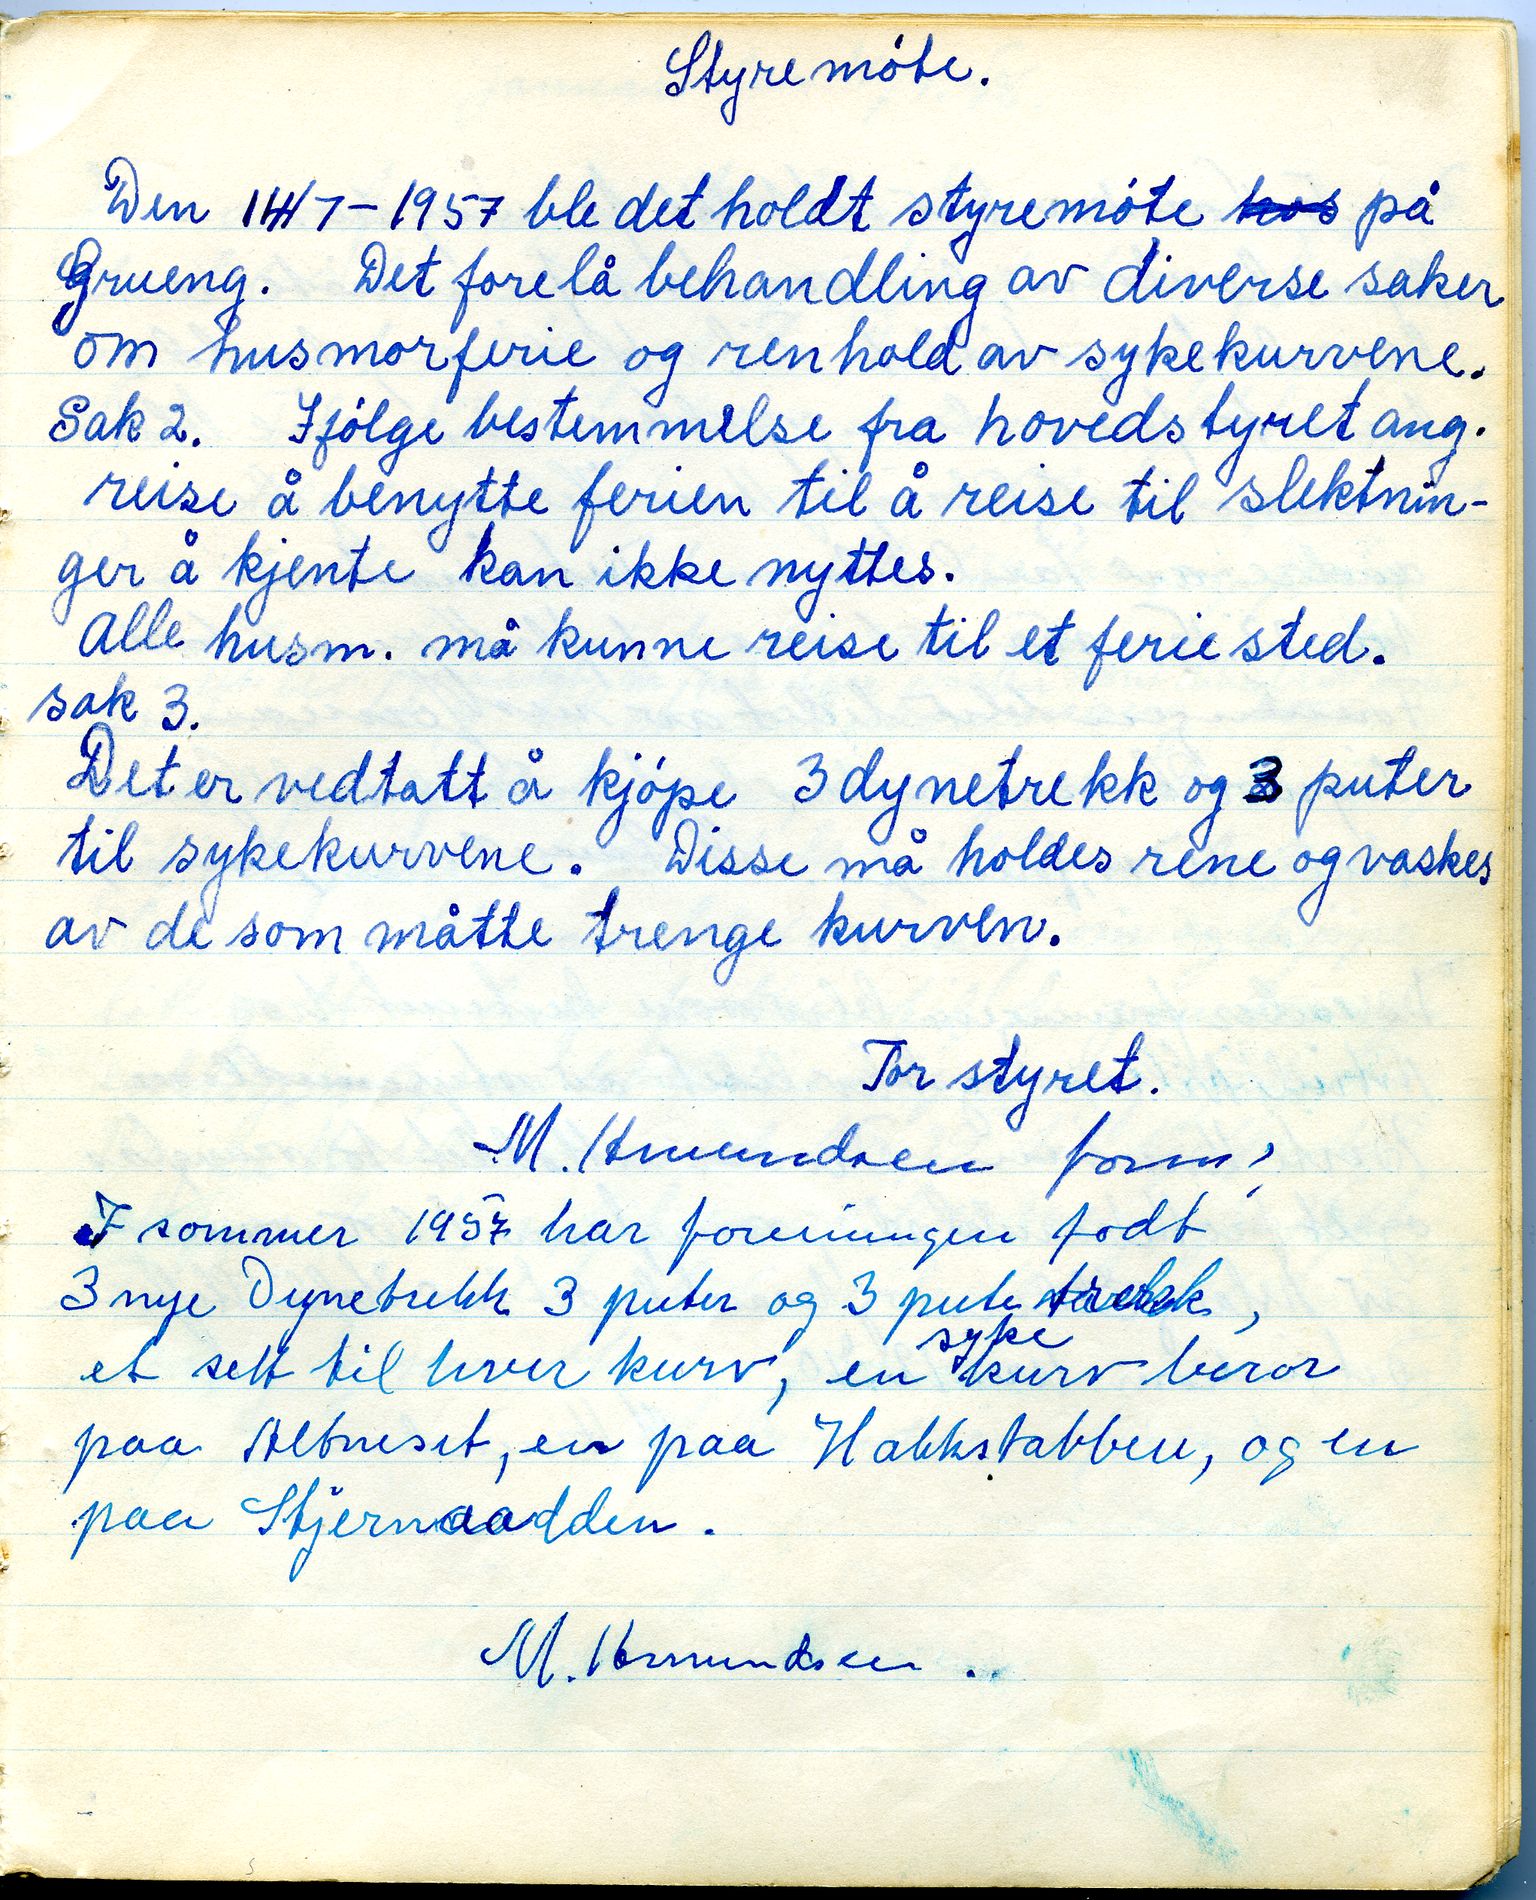 Styremóte.
Den 14/7-1957 ble det holdt styremóte hos på
Grueng. Det forelå behandling av diverse saker
om husmorferie og renhold av sykekurvene.
Sak 2. Ifólge bestemmelse fra hovedstyret ang.
reise å benytte ferien til å reise til slektnin-
ger å kjente kan ikke nyttes.
Alle husm. må kunne reise til et feriested.
sak 3.
Det er vedtatt å kjópe 3 dynetrekk og 3 puter
til sykekurvene. Disse må holdes rene og vaskes
av de som måtte trenge kurven.
For styret.
M. Amundsen form,
I sommer 1957 har foreningen
3 nye Dynetrekk 3 puter og 3 pute trekk,
syke
et sett til hver kurv, en kurv beror
paa Altneset, en paa Hakkstabben, og en
paa Stjernaodden.
M. Amundsen ..